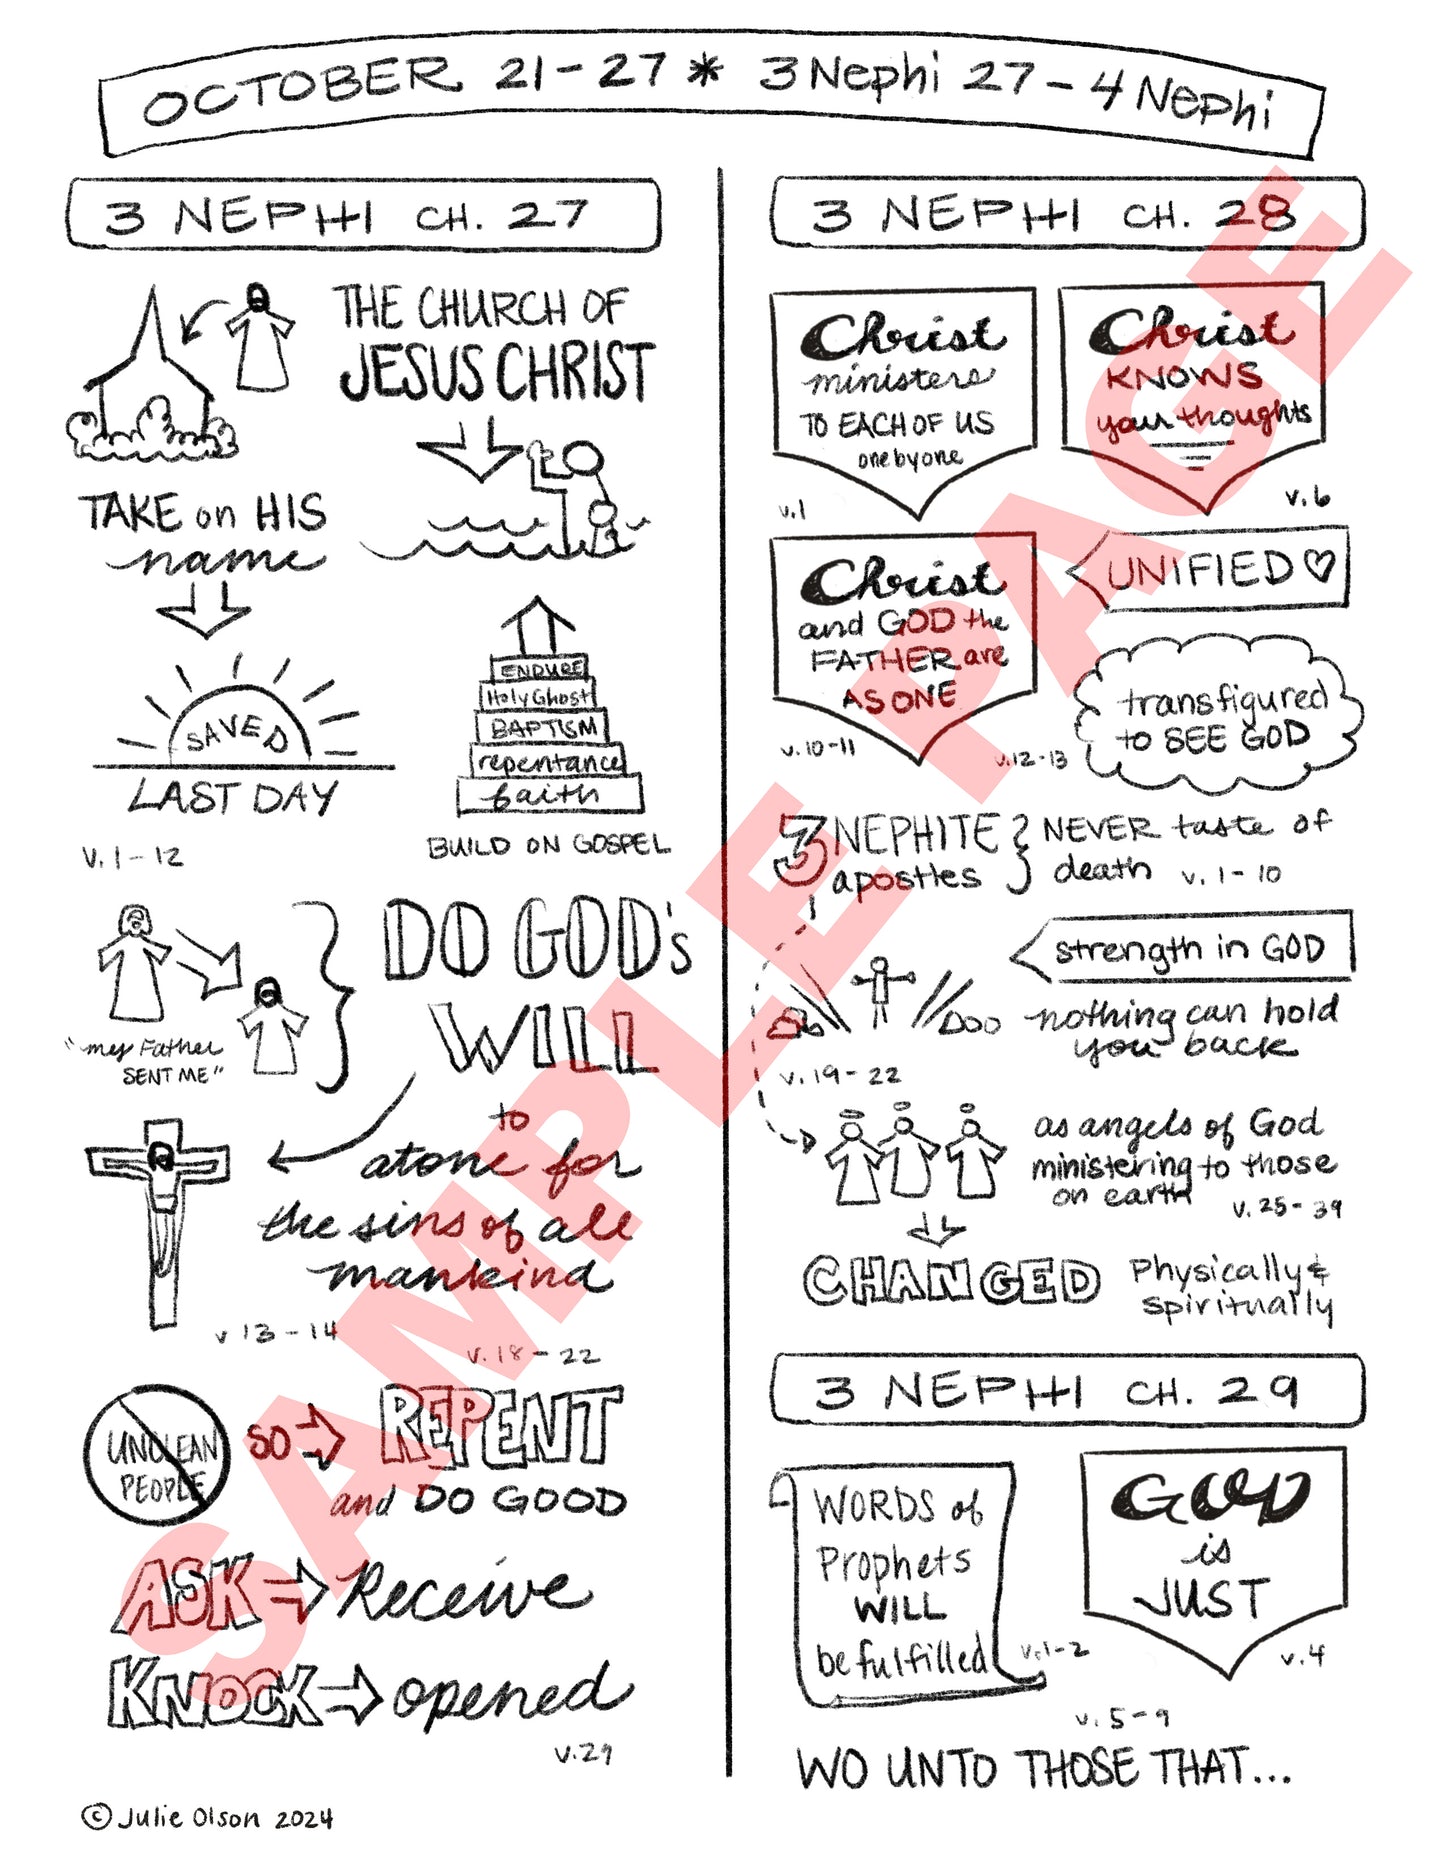 OCTOBER 21-27 * 3 Nephi 27 - 4 Nephi
3 NEPHI CH. 27
THE CHURCH OF
JESUS CHRIST
TAKE on HIS
name
SAVED
LAST DAY
V. 1-12
ENDURE
Holy Ghost
BAPTISM
repentance
faith
BUILD ON GOSPEL
"my Father
SENT ME"
DO GOD's
WILL
to
atone for
the sins of all
mankind
v 13-14
v. 18-22
UNCLEAN
PEOPLE
SO
REPENT
and DO GOOD
ASK Receive
KNOCK opened
v.29
© Julie Olson 2024
3 NEPHI CH. 28
Christ
ministers
TO EACH OF US
one by one
v.1
Christ
KNOWS
your thoughts
v.6
Christ
and GOD the
FATHER are
AS ONE
v.10-11
UNIFIED
transfigured
to SEE GOD
v.12-13
3 NEPHITE
apostles
NEVER taste of
death v. 1-10
strength in GOD
nothing can hold
you back
v.19-22
as angels of God
ministering to those
on earth
v.25-39
CHANGED
Physically &
spiritually
3 NEPHI CH. 29
WORDS of
Prophets
WILL
be fulfilled
v.1-2
GOD
is
JUST
v.4
v.5-9
WO UNTO THOSE THAT...
SAMPLE PAGE